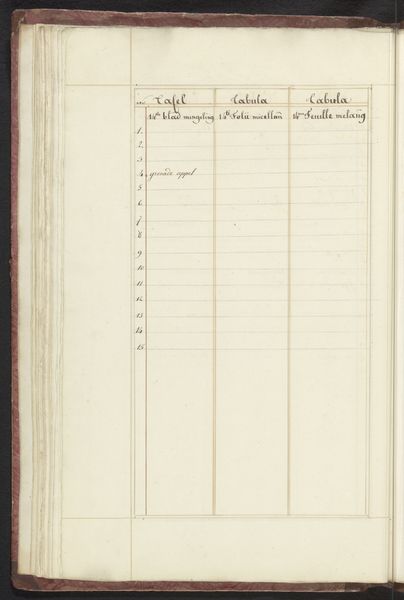 Tafel Tabula Tabula
14de blad mengeling 14ti Folii micellan 14me Feuille melang
1.
2.
3
4 grenade appel
5
6
7
8
9
10
11
12
13
14
15